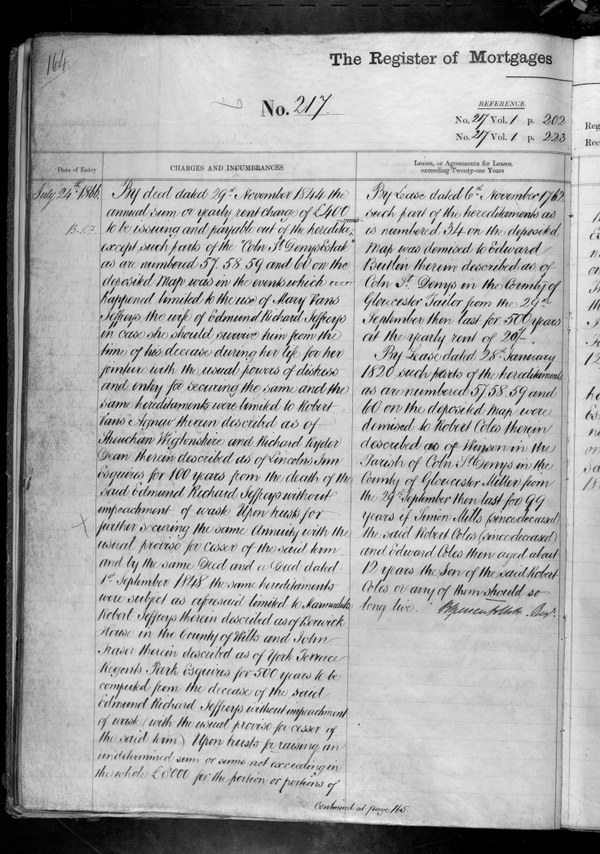 164
The Register of Mortgages
No. 217.
REFERENCE.
No. 217 Vol. 1 p. 202
No. 217 Vol. 1 p. 223
Date of Entry
CHARGES AND INCUMBRANCES
Leases, or Agreements for Leases,
exceeding Twenty-one Years
July 24th 1866.
By deed dated 29th November 1844 the
annual sum or yearly rent charge of £400
to be issuing and payable out of the heredita-
ments
except such parts of the Coln St Denys Estate
as are numbered 57. 58. 59 and 60 on the
deposited Map was in the events which
happened limited to the use of Mary Vans
Jeffreys the wife of Edmund Richard Jeffreys
in case she should survive him from the
time of his decease during her life for her
jointure with the usual powers of distress
and entry for securing the same and the
same hereditaments were limited to Robert
Vans Agnew therein described as of
Sheuchan Wigtonshire and Richard Ryder
Dean therein described as of Lincolns Inn
Esquires for 100 years from the death of the
said Edmund Richard Jeffreys without
impeachment of waste Upon trusts for
further securing the same Annuity with the
usual proviso for cesser of the said term
and by the same Deed and a Deed dated
1st September 1848 the same hereditaments
were subject as aforesaid limited to Marmaduke
Robert Jeffreys therein described as of
House in the County of Wilts and John
Fraser therein described as of York Terrace
Regents Park Esquires for 500 years to be
computed from the decease of the said
Edmund Richard Jeffreys without impeachment
of waste (with the usual proviso for cesser of
the said term) Upon trusts for raising an
undetermined sum or sums not exceeding in
the whole £8000 for the portion or portions of
Continued at page 165
By Lease dated 6th November 1762
such part of the hereditaments as
is numbered 34 on the deposited
Map was demised to Edward
Butlin therein described as of
Coln St. Denys in the County of
Gloucester Tailor from the 29th
September then last for 500 years
at the yearly rent of 20/-.
By Lease dated 28th January
1820 such parts of the hereditaments
as are numbered 57. 58. 59 and
60 on the deposited Map were
demised to Robert Coles therein
described as of Winson in the
Parish of Coln St Denys in the
County of Gloucester Miller from
the 29th September then last for 99
years if Simon Mills (since deceased)
the said Robert Coles (since deceased)
and Edward Coles then aged about
12 years the Son of the said Robert
Coles or any of them should so
long live.